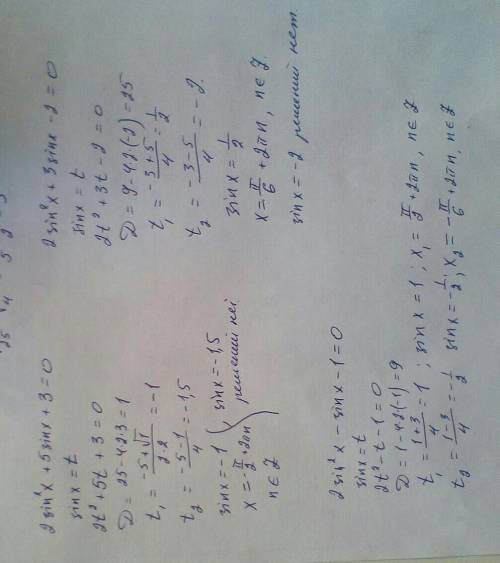 2sin²x+5sinx+3=0
sinx=t
2t²+5t+3=0
D=25-4·2·3=1
t₁ = (-5+√1)/(2·2) = -1
t₂ = (-5-1)/4 = -1,5
sinx=-1
x=-π/2+2πn
n∈Z
sinx=-1,5
решений
2sin²x+3sinx-2=0
sinx=t
2t²+3t-2=0
D=9-4·2(-2)=25
t₁ = (-3+5)/4 = 1/2
t₂ = (-3-5)/4 = -2.
sinx=1/2
x=π/6+2πn, n∈Z.
sinx=-2 решений нет.
2sin²x-sinx-1=0
sinx=t
2t²-t-1=0
D=1-4·2(-1)=9
t₁ = (1+3)/4 = 1; sinx=1; x₁=π/2+2πn, n∈Z
t₂ = (1-3)/4 = -1/2 sinx=-1/2; x₂=-π/6+2πn, n∈Z